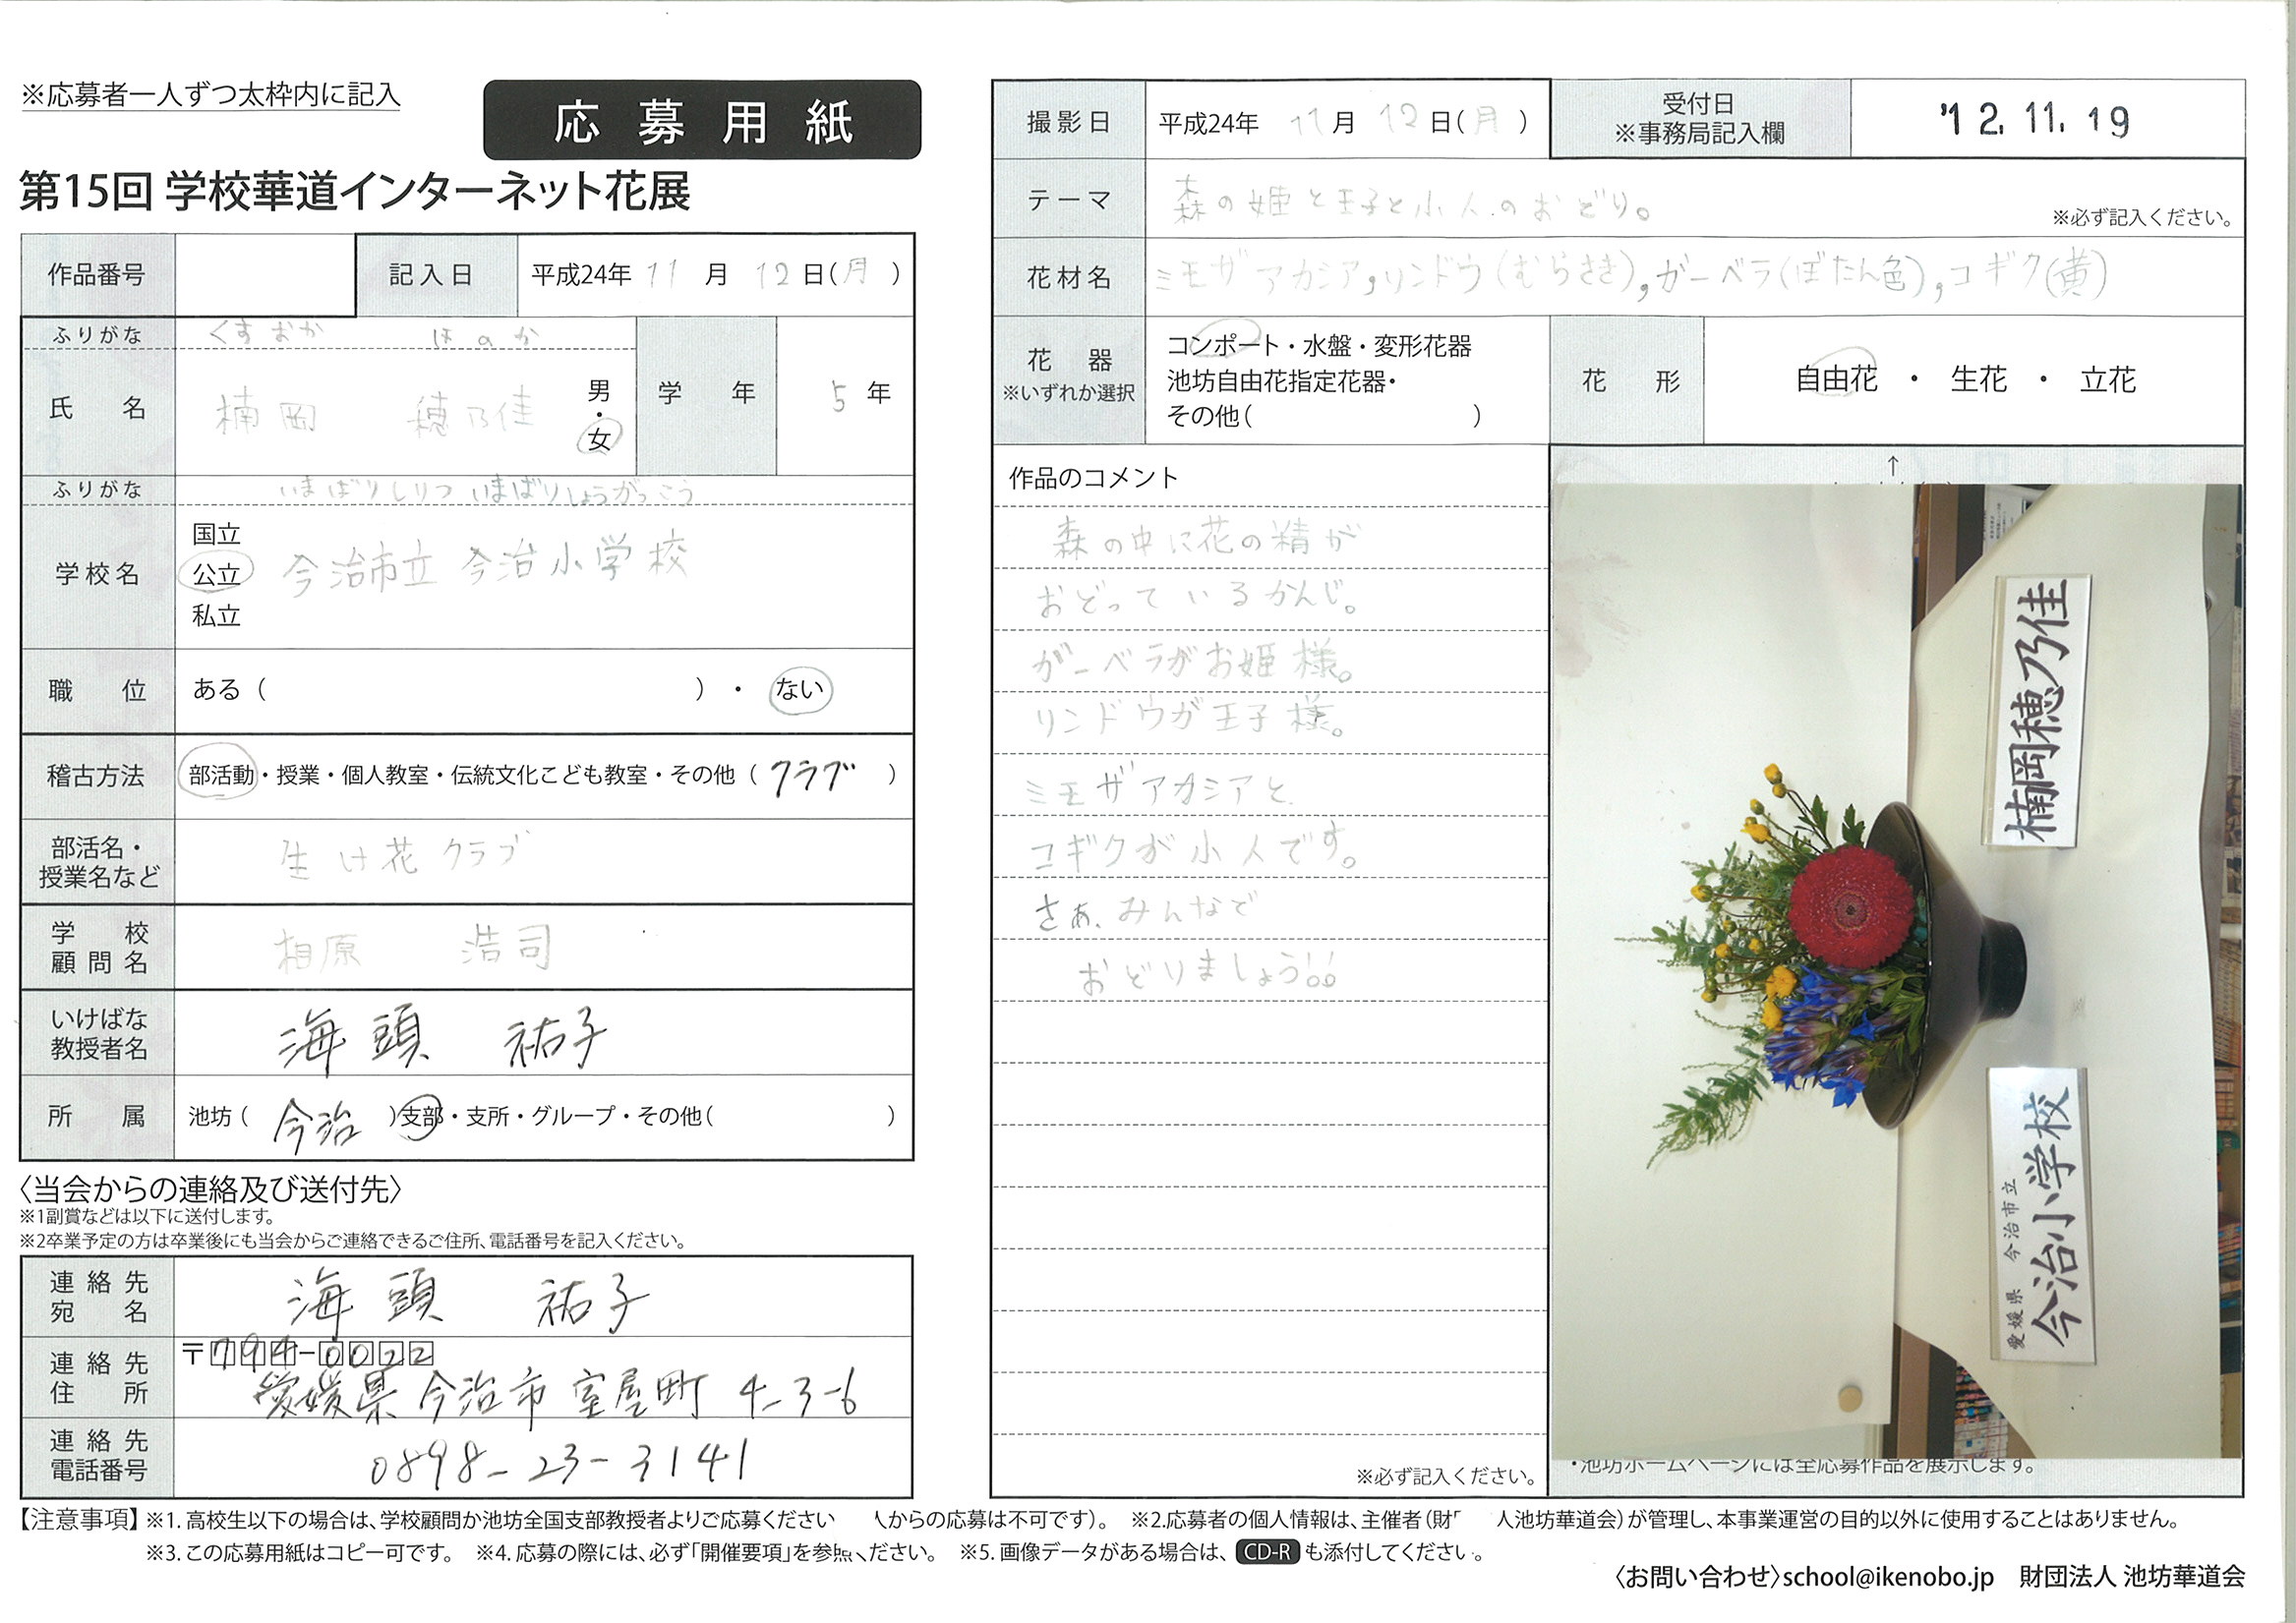 ※応募者一人ずつ太枠内に記入
応募用紙
第15回 学校華道インターネット花展
作品番号
記入日 平成24年 11月 12日(月)
ふりがな くすおか ほのか
氏名 楠岡 穂乃佳 男・女
学年 5年
ふりがな いまばりしりつ いまばりしょうがっこう
学校名 国立 公立 私立 今治市立 今治小学校
職位 ある( )・ない
稽古方法 部活動・授業・個人教室・伝統文化こども教室・その他(クラブ)
部活名・授業名など 生け花クラブ
学校顧問名 相原 浩司
いけばな教授者名 海頭 祐子
所属 池坊(今治)支部・支所・グループ・その他( )
〈当会からの連絡及び送付先〉
※1副賞などは以下に送付します。
※2卒業予定の方は卒業後にも当会からご連絡できるご住所、電話番号を記入ください。
連絡先宛名 海頭 祐子
連絡先住所 〒794-0022
愛媛県今治市室屋町4-3-6
連絡先電話番号 0898-23-3141
撮影日 平成24年 11月 12日(月)
受付日 ※事務局記入欄 '12.11.19
テーマ 森の姫と王子と小人のおどり。
※必ず記入ください。
花材名 ミモザアカシア,リンドウ(むらさき),ガーベラ(ぼたん色),コギク(黄)
花器 ※いずれか選択
コンポート・水盤・変形花器
池坊自由花指定花器・
その他( )
花形 自由花・生花・立花
作品のコメント
森の中に花の精が
おどっているかんじ。
ガーベラがお姫様。
リンドウが王子様。
ミモザアカシアと
コギクが小人です。
さぁ、みんなで
おどりましょう!!
※必ず記入ください。
↑
楠岡穂乃佳
愛媛県 今治市立
今治小学校
・池坊ホームページには全応募作品を展示します。
【注意事項】※1. 高校生以下の場合は、学校顧問か池坊全国支部教授者よりご応募ください 人からの応募は不可です)。 ※2.応募者の個人情報は、主催者(財 人池坊華道会)が管理し、本事業運営の目的以外に使用することはありません。
※3. この応募用紙はコピー可です。 ※4. 応募の際には、必ず「開催要項」を参照ください。 ※5. 画像データがある場合は、CD-Rも添付してください。
〈お問い合わせ〉school@ikenobo.jp 財団法人 池坊華道会